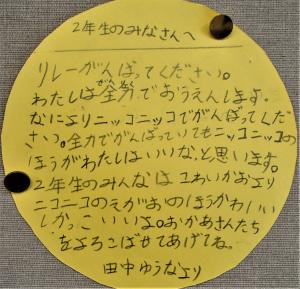 2年生のみなさんへ
リレーがんばってください。
わたしは全力でおうえんします。
なによりニッコニッコでがんばってくだ
さい。全力でがんばっていてもニッコニッコの
ほうがわたしはいいな、と思います。
2年生のみんなは こわいかおより
ニコニコのえがおのほうがかわいい
しかっこいいよ。おかあさんたち
をよろこばせてあげてね。
田中ゆうなより